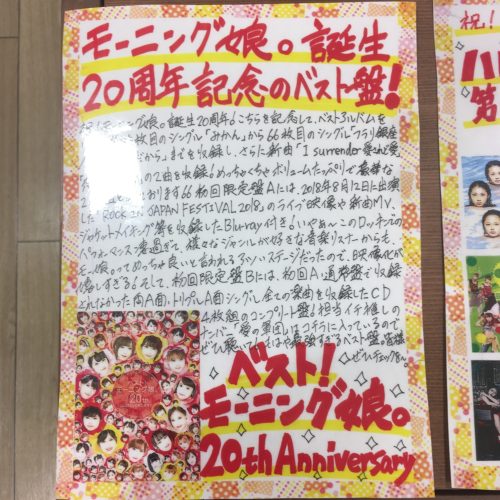 モーニング娘。誕生
20周年記念のベスト盤!
モーニング娘。誕生20周年!こちらを記念して、ベストアルバムを
枚目のシングル「みかん」から66枚目のシングル「フラリ銀座
だから」までを収録し、さらに新曲「I surrender 愛されど愛
の2曲を収録!めっちゃくちゃボリュームたっぷりで豪華な
おります!初回限定盤Aには、2018年8月12日に出演
した「ROCK IN JAPAN FESTIVAL 2018」のライブ映像や新曲MV、
ジャケットメイキング等を収録したBlu-ray付き!いやぁ~このロッキンでの
パフォーマンス凄過ぎて、様々なジャンルが好きな音楽リスナーからも、
モー娘。ってめっちゃ良いと言われるアツいステージだったので、映像化が
嬉しすぎる!そして、初回限定盤Bには、初回A・通常盤で収録
されなかった両A面、トリプルA面シングル、全ての楽曲を収録したCD
4枚組のコンプリート盤!担当イチ推しの
ナンバー「愛の軍団」はコチラに入っているので
ぜひ聴いて!もはや最強すぎるベスト盤。皆様
ぜひチェックを!
ベスト!
モーニング娘。
20th Anniversary
モーニング娘。
20th
祝!
ハ
第